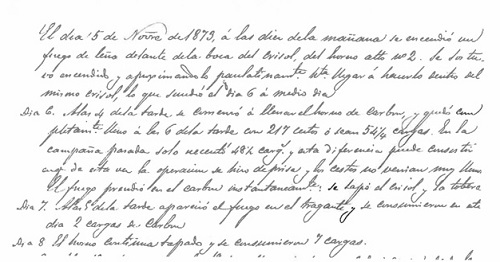 El dia 5 de Novre de 1873, á las diez dela mañana se encendió un
fuego de leña delante dela boca del crisol, del horno alto nº 2. Se sostu-
vo encendido y aproximandolo paulatinamte hta llegar á hacerlo dentro del
mismo crisol, lo que sucedió el dia 6 á medio dia
Dia 6. Alas 4 dela tarde se comenzó á llenar el horno de Carbon, y quedó com
pletamte lleno á las 6 dela tarde con 217 cestos ó sean 54¼ cargas. En la
campaña pasada solo necesitó 48¾ cargs. y esta diferencia puede consistir
en qe. esta vez la operacion se hizo deprisa y los cestos no venian muy llenos
El fuego prendió en el carbon instantaneamte: se tapó el crisol y la tobera
Dia 7. Alas 5 dela tarde apareció el fuego en el tragante y se consumieron en este
dia 2 cargas de Carbon
Dia 8 El horno continua tapado y se consumieron 7 cargas.